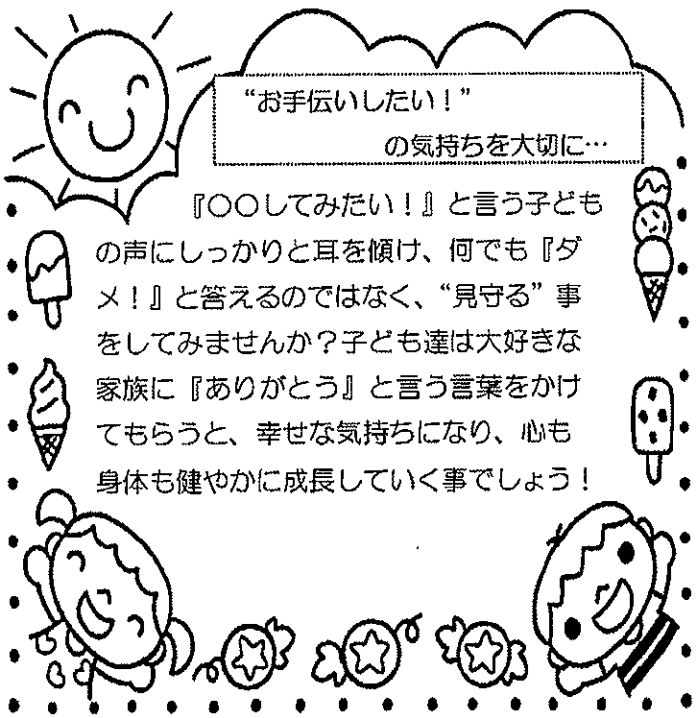 “お手伝いしたい！”
の気持ちを大切に…
『〇〇してみたい！』と言う子ども
の声にしっかりと耳を傾け、何でも『ダ
メ！』と答えるのではなく、“見守る”事
をしてみませんか？子ども達は大好きな
家族に『ありがとう』と言う言葉をかけ
てもらうと、幸せな気持ちになり、心も
身体も健やかに成長していく事でしょう！